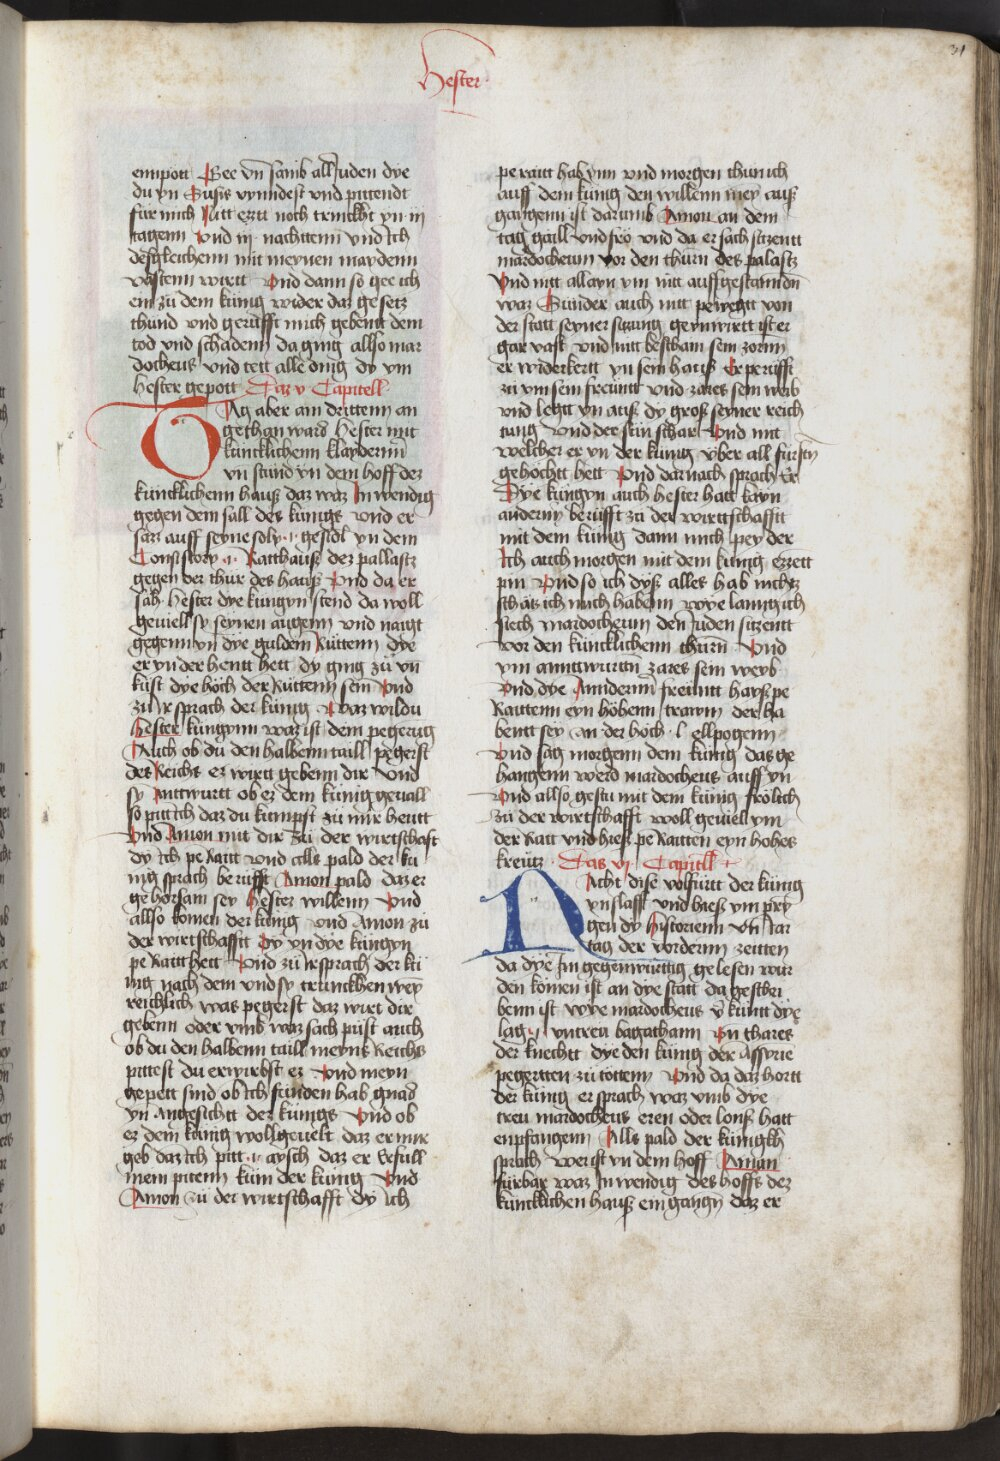 31
Hester
empott Gee vn̄ samb all Juden dye
du yn Susis vynndest vnd pittendt
für mich Nitt ezzt noch trinckht yn iij
tagenn Vnd iij nachttenn vnd Ich
desgleichenn mit meynen maydenn
vastenn wirtt Vnd dann so gee ich
ein zü dem künig wider daz gesetz
thund vnd gerüfft mich gebentt dem
tod vnd schadenn da ging allso mar
docheus vnd tett alle ding dy ym
hester gepott Daz v Capitell
TAg aber am drittenn an
gethan ward hester mit
künicklichenn klaydernn
vn stünd yn dem hoff dez
künicklichenn hauß daz waz Inwendig
gegen dem sall des künigs vnd er
sazz auff seyne soly .i. gestöl yn dem
Consistory .i. Ratthauß dez pallastz
gegen der thür des hauß Vnd da er
sah hester dye küngyn stend da woll
geuiell sy seynen augenn vnd naigt
gegenn yn dye guldem Rüttenn dye
er yn der hentt hett dy ging zü vn̄
küst dye höch der Rüttenn sein Vnd
zü ir sprach der künig Waz wildu
hester küngynn waz ist dem pegerūg
Auch ob du den halbenn taill pegerst
des Reichs ez wirtt gebenn dir Vnd
sy Anttwurtt ob ez dem künig geuall
so pitt ich daz du kumpst zü mir heutt
Vnd Amon mit dir Zü der wirtschaft
dy Ich pe Raitt vnd alls pald der kü
nig sprach berüfft Amon pald daz er
gehorsam sey hester willenn Vnd
allso komen der künig vnd Amon zü
der wirtschafft Dy yn dye küngyn
pe Raitt hett Vnd zü ir sprach der kü
nig nach dem vnd sy trünckhen wey
reichlich was pegerst daz wirt dir
gebenn oder vmb waz sach püst auch
ob du den halbenn taill meyns Reichs
pittest du erwirbst ez Vnd meyn
gepett sind ob Ich fünden hab gnad
yn Angesichtt der künigs Vnd ob
ez dem künig woll geuelt daz er mir
geb daz Ich pitt .v. aysch daz er erfüll
mein pitenn küm der künig Vnd
Amon zü der wirtschafft dy Ich
pe raitt hab ynn vnd morgen thün ich
auff dem künig den willenn mey auß
gangenn ist darumb Amon an dem
tag gaill vnd frö vnd da er sach sitzentt
mardocheum vor den thürn des palastz
Vnd nitt allayn ym nitt auffgestanndn̄
waz Sünder auch nitt pewegtt von
der statt seyner sitzung geynwirtt ist er
gar vast vnd mit bestham sein zornn
er widerkertt yn sein hauß Er perüfft
zü ym sein freuntt vnd zares sein weib
vnd legtt yn auß dy groß seyner reich
tung vnd der sün schar Vnd mit
welcher er yn der künig über all fürstn̄
gehöchtt hett Vnd darnach sprach Er
Dye küngyn auch hester hatt kayn
anderny berüfft zü der wirttschafft
mit dem künig dann mich pey der
Ich auch morgen mit dem künig ezzett
pin Vnd so ich dyß alles hab nichtz
schätz ich mich habenn wye lanng ich
siech mardocheum den Juden sitzentt
vor den künicklichenn thürn Vnd
ym anntwurtn̄ zares sein weyb
Vnd dye Annderm̄ freuntt hayß pe
Raittenn eyn höhenn trawm der ha
bentt sey an der höch l ellpogenn
Vnd sag morgenn dem künig das ge
hangenn werd mardocheus auff yn
Vnd allso gestu mit dem künig frölich
zü der wirtschafft woll geuiell ym
der Ratt vnd hieß pe Raitten eyn hohes
kreütz Das vj Capitll
NAcht dise volfürtt der künig
yn slaff vnd hieß ym prȳ
gen dy historienn vn̄ Jar
tag der vordernn zeitten
da dye Im gegenwürttig gelesen wur
den komen ist an dye statt da geschri
benn ist wye mardocheus v̄küntt dye
lag .i. vntreu bagathann Vn̄ thares
der knechtt dye den künig der Assyrie
pegertten zü tottenn Vnd da daz hortt
der künig er sprach waz vmb dye
treu mardocheus eren oder lons hatt
enpfangenn Alls pald der künigkh
sprach wer ist yn dem hoff Aman
fürbar waz Inwendig des hoffs dez
künicklichen hauß eingangn̄ daz er